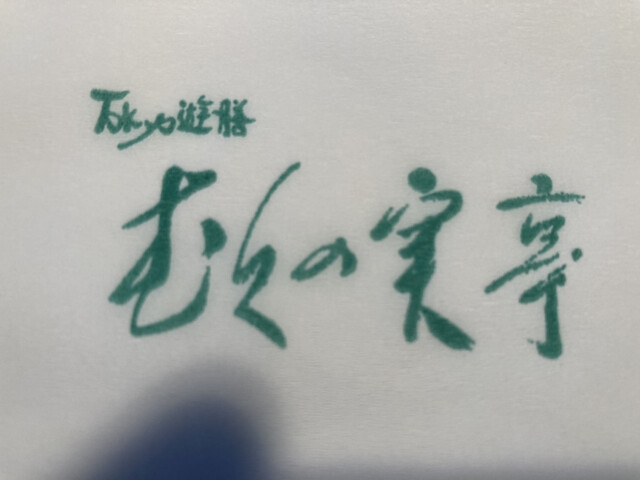 Tokyo遊膳
むくの実亭